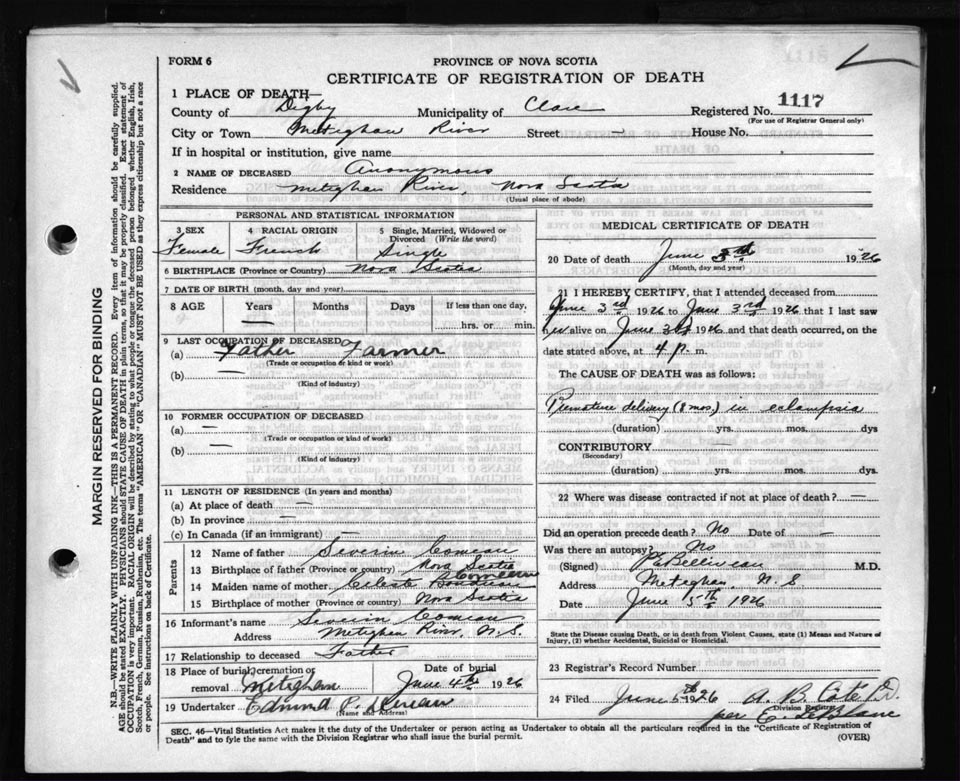 FORM 6
PROVINCE OF NOVA SCOTIA
CERTIFICATE OF REGISTRATION OF DEATH
1 PLACE OF DEATH—
Registered No. 1117
(For use of Registrar General only)
County of Digby Municipality of Clare
City or Town Meteghan River Street — House No.
If in hospital or institution, give name
2 NAME OF DECEASED Anonymous
Residence Meteghan River, Nova Scotia
(Usual place of abode)
PERSONAL AND STATISTICAL INFORMATION
3 SEX Female
4 RACIAL ORIGIN French
5 Single, Married, Widowed or Divorced (Write the word) Single
6 BIRTHPLACE (Province or Country) Nova Scotia
7 DATE OF BIRTH (month, day and year)
8 AGE Years Months Days If less than one day,
— hrs. or min.
9 LAST OCCUPATION OF DECEASED
(a) Father Farmer
(Trade or occupation or kind or work)
(b)
(Kind of industry)
10 FORMER OCCUPATION OF DECEASED
(a) —
(Trade or occupation or kind of work)
(b) —
(Kind of industry)
11 LENGTH OF RESIDENCE (In years and months)
(a) At place of death —
(b) In province —
(c) In Canada (if an immigrant) —
Parents
12 Name of father Severin Comeau
13 Birthplace of father (Province or country) Nova Scotia
14 Maiden name of mother Celeste Comeau
15 Birthplace of mother (Province or country) Nova Scotia
16 Informant's name Severin Comeau
Address Meteghan River, N.S.
17 Relationship to deceased Father
18 Place of burial, cremation or removal Meteghan
Date of burial June 4th 1926
19 Undertaker Edmund P.
(Name and Address)
MEDICAL CERTIFICATE OF DEATH
20 Date of death June 1926
(Month, day and year)
21 I HEREBY CERTIFY, that I attended deceased from
June 3rd 1926 to June 3rd 1926 that I last saw
her alive on June 3rd 1926 and that death occurred, on the
date stated above, at 4 p. m.
The CAUSE OF DEATH was as follows:
Premature delivery (8 mos.) in eclampsia
(duration) yrs. mos. dys
CONTRIBUTORY —
(Secondary)
(duration) yrs. mos. dys.
22 Where was disease contracted if not at place of death? —
Did an operation precede death? No Date of —
Was there an autopsy? No
(Signed) Belliveau M.D.
Address Meteghan N.S
Date June 5th 1926
State the Disease causing Death, or in death from Violent Causes, state (1) Means and Nature of
Injury, (2) whether Accidental, Suicidal or Homicidal.
23 Registrar's Record Number
24 Filed June 1926
Division Registrar
per
SEC. 46—Vital Statistics Act makes it the duty of the Undertaker or person acting as Undertaker to obtain all the particulars required in the "Certificate of Registration of
Death" and to fyle the same with the Division Registrar who shall issue the burial permit.
(OVER)
MARGIN RESERVED FOR BINDING
N.B.—WRITE PLAINLY WITH UNFADING INK—THIS IS A PERMANENT RECORD. Every item of information should be carefully supplied.
AGE should be stated EXACTLY. PHYSICIANS should STATE CAUSE OF DEATH in plain terms, so that it may be properly classified. Exact statement of
OCCUPATION is very important. RACIAL ORIGIN will be described by stating to what people or tongue the deceased person belonged whether English, Irish,
Scotch, French, German, Russian, Ruthenian, etc. The terms "AMERICAN" OR "CANADIAN" MUST NOT BE USED as they express citizenship but not a race
or people. See instructions on back of Certificate.